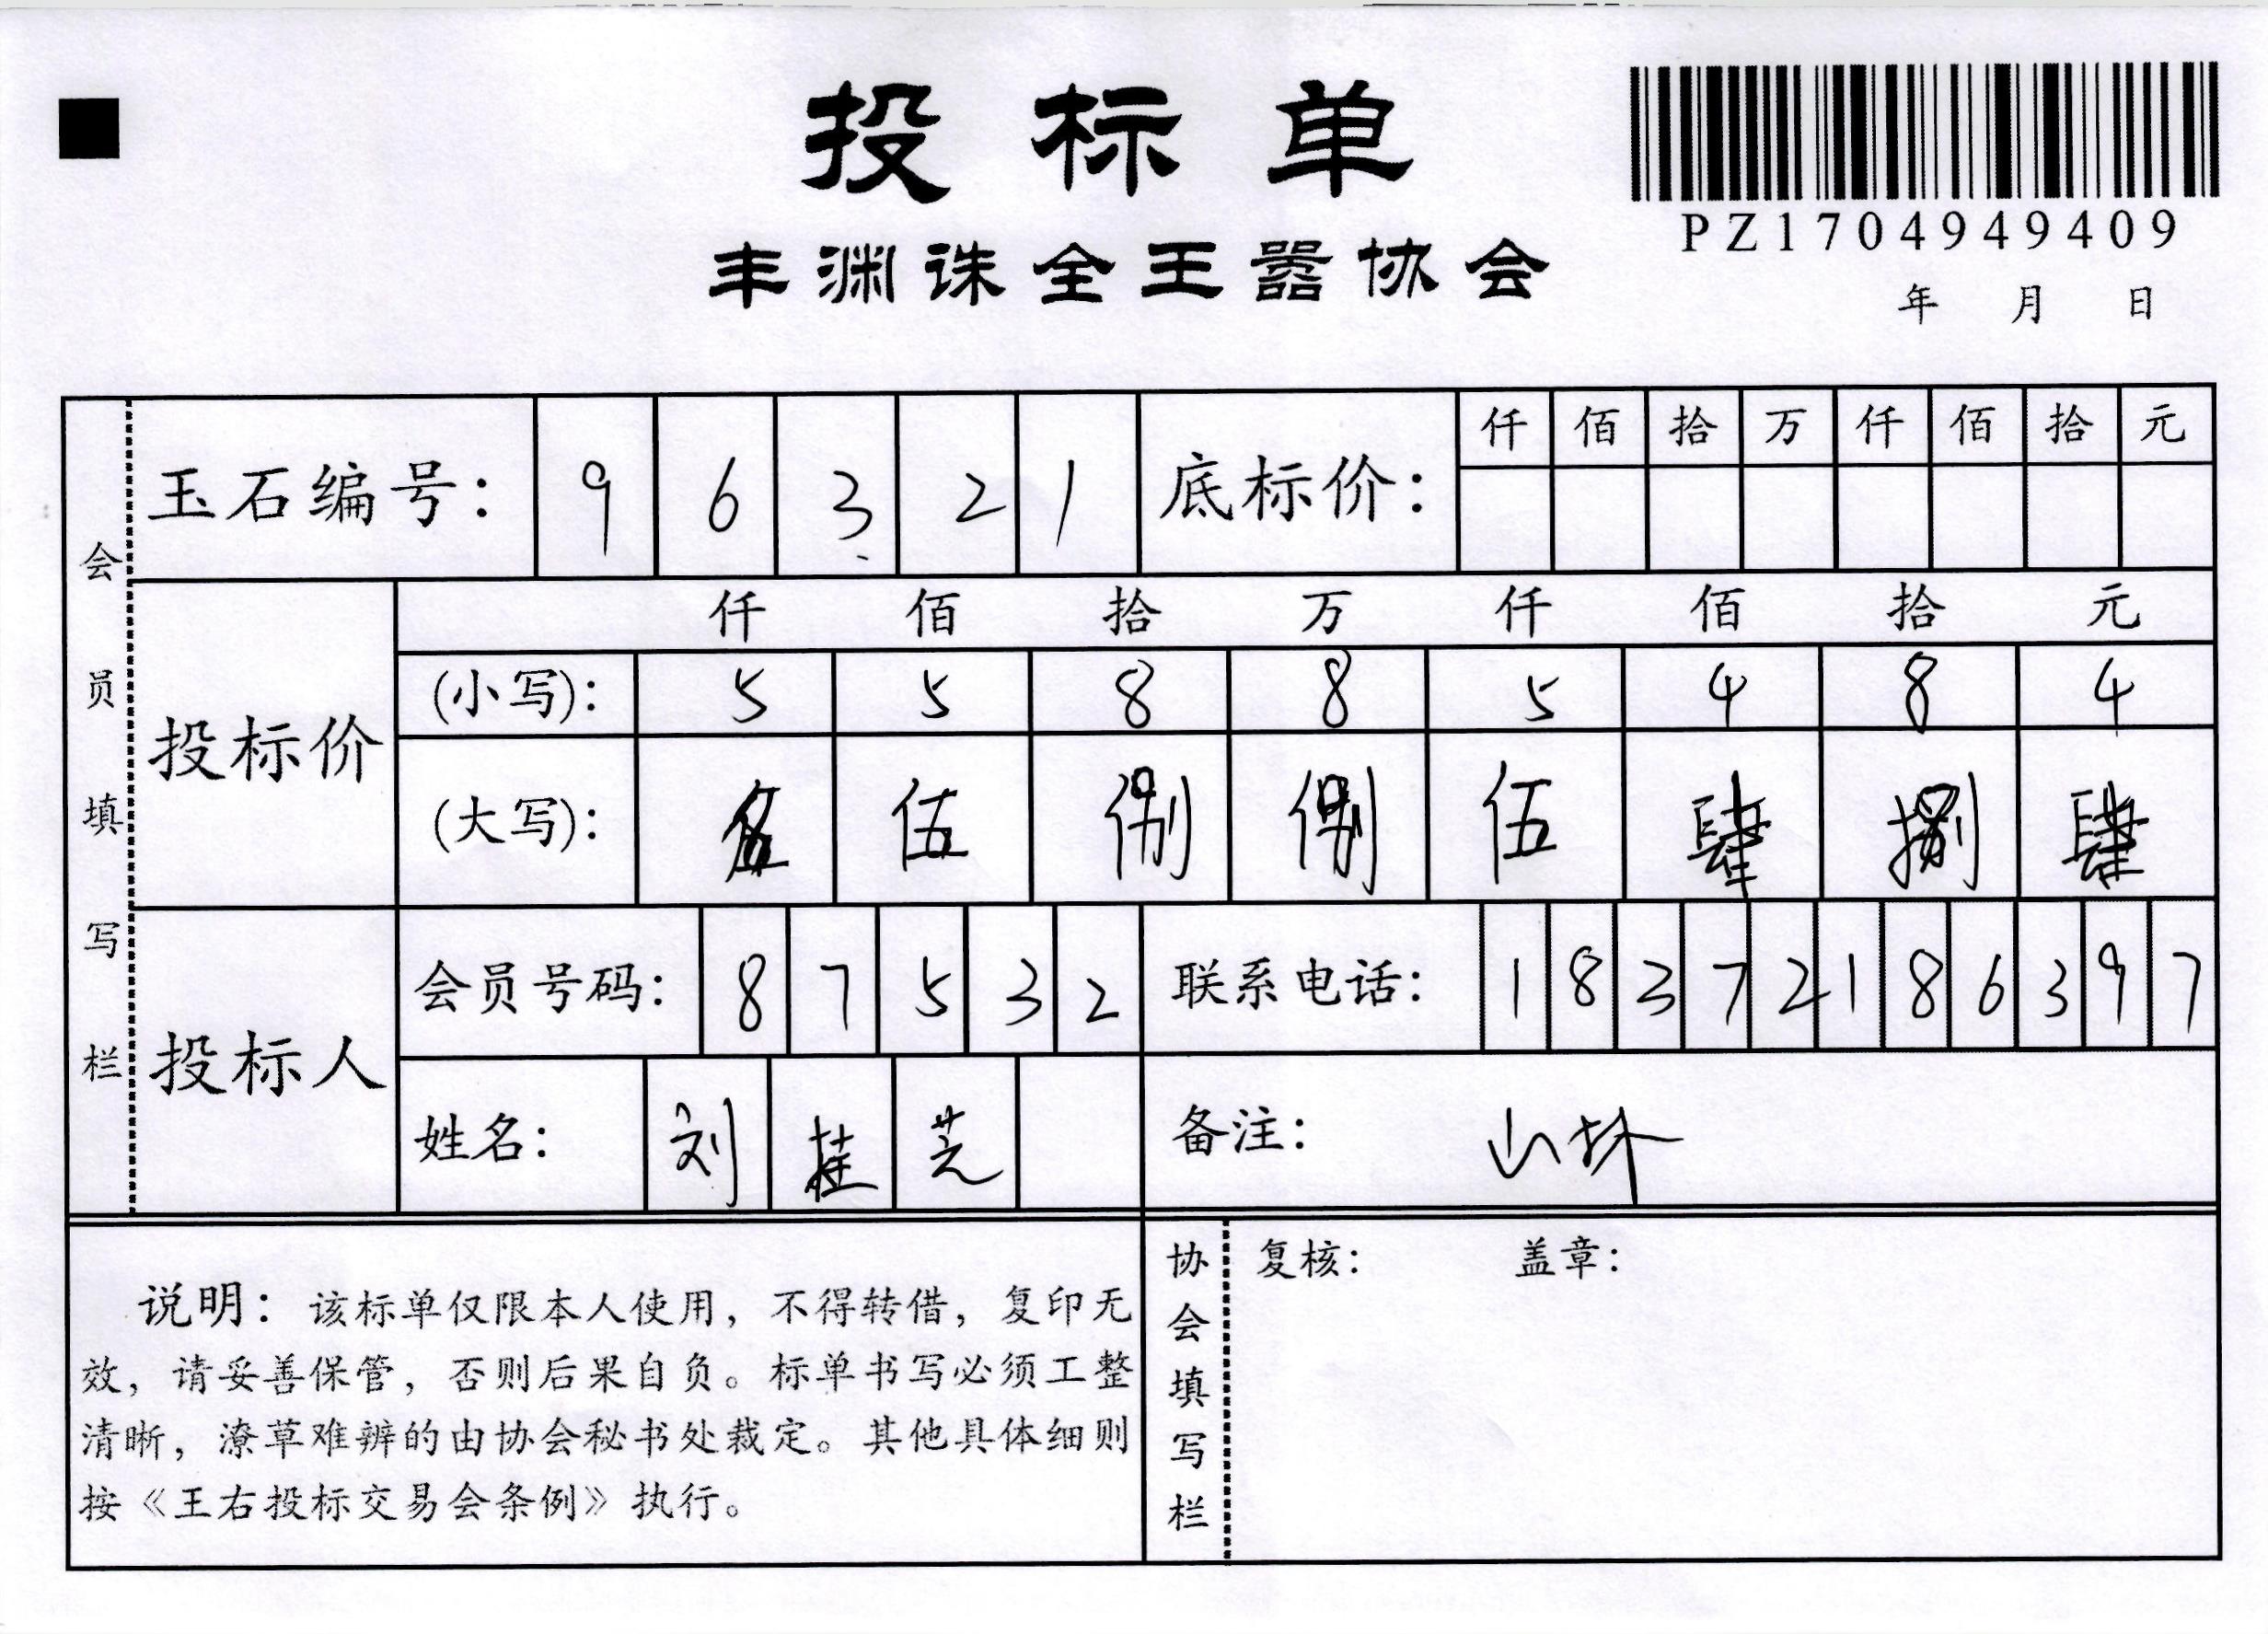 投标单
PZ1704949409
丰渊诛全王嚣协会
年 月 日
会员填写栏
玉石编号： 9 6 3 2 1 底标价： 仟 佰 拾 万 仟 佰 拾 元
投标价 仟 佰 拾 万 仟 佰 拾 元
(小写)： 5 5 8 8 5 4 8 4
(大写)： 伍 伍 捌 捌 伍 肆 捌 肆
投标人 会员号码： 8 7 5 3 2 联系电话： 1 8 3 7 2 1 8 6 3 9 7
姓名： 刘 桂 芝 备注： 山
说明：该标单仅限本人使用，不得转借，复印无
效，请妥善保管，否则后果自负。标单书写必须工整
清晰，潦草难辨的由协会秘书处裁定。其他具体细则
按《王右投标交易会条例》执行。
协会填写栏
复核： 盖章：